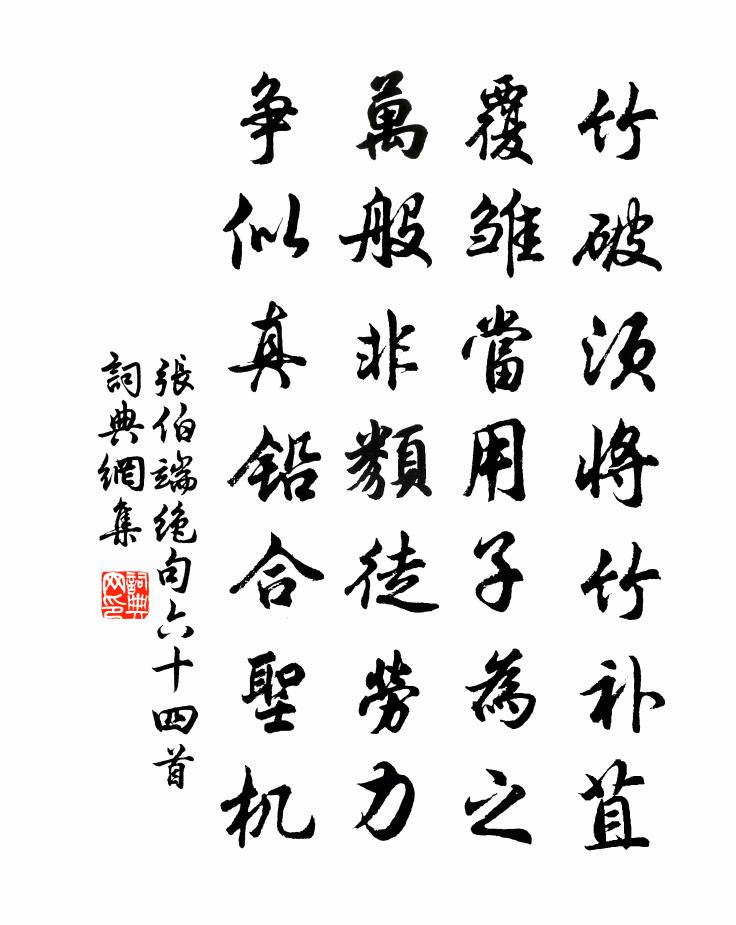 竹破须将竹补苴
覆雏當用子為之
萬般非類徒勞力
争似真铅合聖机
張伯端绝句六十四首
詞典網集
詞典网印